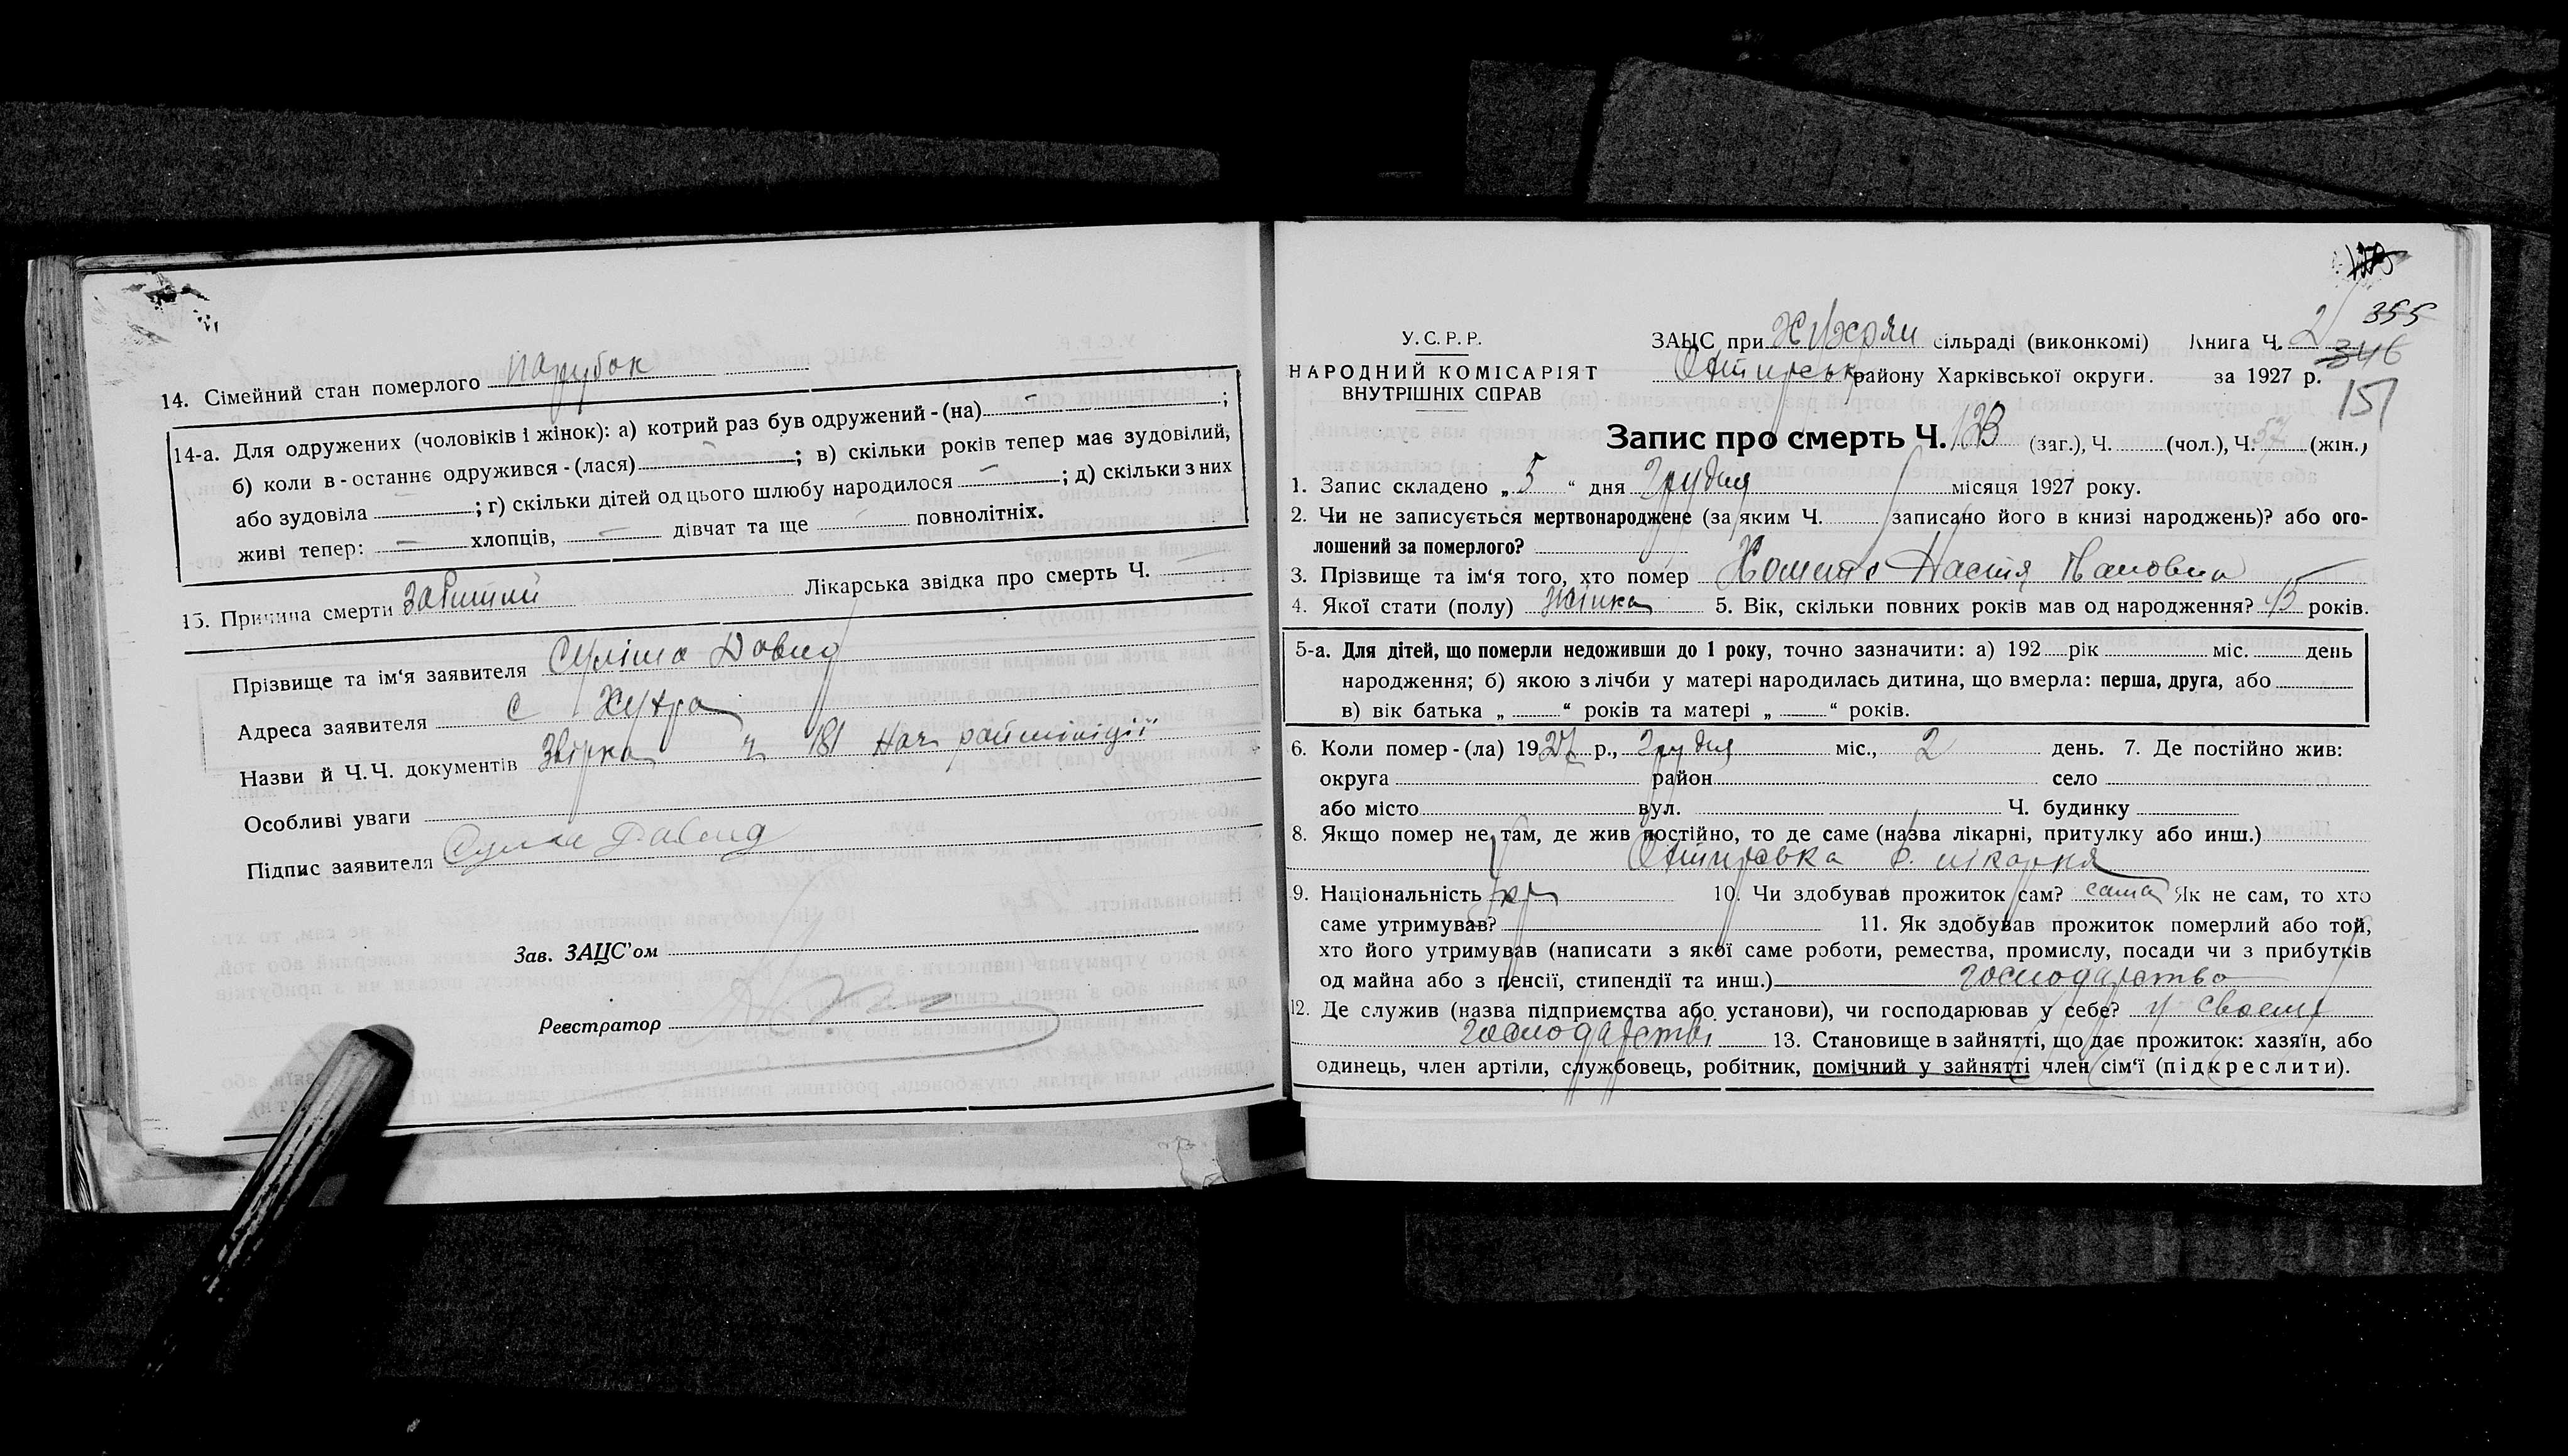 14. Сімейний стан померлого парубок
14-а. Для одружених (чоловіків і жінок): а) котрий раз був одружений - (на) — ;
б) коли в - останнє одружився - (лася) ; в) скільки років тепер має зудовілий,
або зудовіла ; г) скільки дітей од цього шлюбу народилося — ; д) скільки з них
живі тепер: — хлопців, — дівчат та ще — повнолітніх.
15. Причина смерти забитий Лікарська звідка про смерть Ч. —
Прізвище та ім'я заявителя Суліма Давид
Адреса заявителя с Хухра
Назви й Ч. Ч. документів Звірка ч 181 Нач райміліції
Особливі уваги
Підпис заявителя Сулима Давид
Зав. ЗАЦС'ом
Реєстратор
123
355
У. С. Р. Р.
НАРОДНИЙ КОМІСАРІЯТ
ВНУТРІШНІХ СПРАВ
ЗАЦС при Хухрян сільраді (виконкомі) Книга Ч. 2
346
Охтирськ району Харківської округи. за 1927 р.
151
Запис про смерть Ч. 123 (заг.), Ч. (чол.), Ч. 57 (жін.)
1. Запис складено „ 5 “ дня Грудня місяця 1927 року.
2. Чи не записується мертвонароджене (за яким Ч. записано його в книзі народжень)? або ого-
лошений за померлого?
3. Прізвище та ім'я того, хто помер Настя Івановна
4. Якої стати (полу) жінка 5. Вік, скільки повних років мав од народження? 45 років.
5-а. Для дітей, що померли недоживши до 1 року, точно зазначити: а) 192 рік міс. день
народження; б) якою з лічби у матері народилась дитина, що вмерла: перша, друга, або
в) вік батька „ “ років та матері „ “ років.
6. Коли помер - (ла) 1927 р., Грудня міс., 2 день. 7. Де постійно жив:
округа район село
або місто вул. Ч. будинку
8. Якщо помер не там, де жив постійно, то де саме (назва лікарні, притулку або инш.)
Охтирська лікарня
9. Національність Укр 10. Чи здобував прожиток сам? сама Як не сам, то хто
саме утримував? 11. Як здобував прожиток померлий або той,
хто його утримував (написати з якої саме роботи, ремества, промислу, посади чи з прибутків
од майна або з пенсії, стипендії та инш.) господарство
12. Де служив (назва підприємства або установи), чи господарював у себе? у своєму
господарстві 13. Становище в зайнятті, що дає прожиток: хазяїн, або
одинець, член артіли, службовець, робітник, помічний у зайнятті член сім'ї (підкреслити).